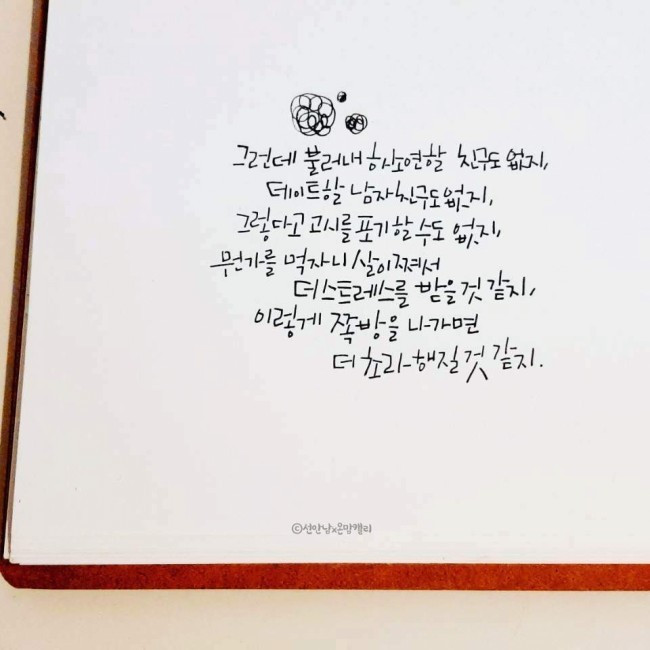 그런데 불러내 하소연할 친구도 없지,
데이트할 남자친구도 없지,
그렇다고 고시를 포기할 수도 없지,
뭔가를 먹자니 살이 쪄서
더 스트레스를 받을 것 같지,
이렇게 쪽방을 나가면
더 초라해질 것 같지.
©선안남x온맘캘리